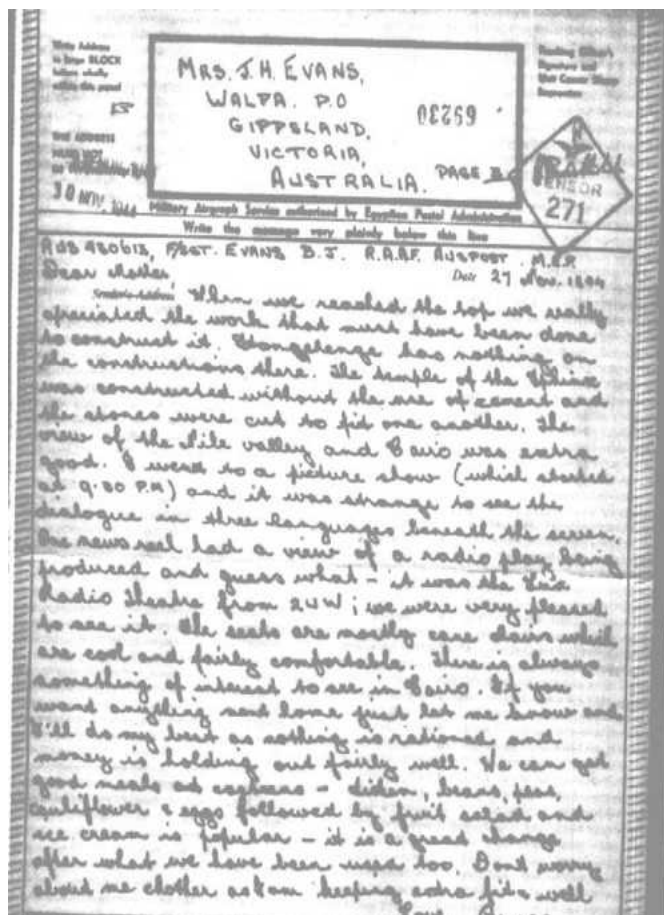 Write Address
in large BLOCK
letters wholly
within this panel
THE ADDRESS
MUST NOT
30 NOV. 1944
MRS. J. H. EVANS,
WALPA. P.O
GIPPSLAND,
VICTORIA,
AUSTRALIA.
69230
PAGE
CENSOR
271
Military Airgraph Service authorised by Egyptian Postal Administration
Write the message very plainly below this line
AUS 430613, F/SGT. EVANS B. J. R.A.A.F. AUSPOST. M.E.F.
Dear Mother,
Date 27 Nov. 1944
Sender's Address
When we reached the top we really
apreciated the work that must have been done
to construct it. Stongehenge has nothing on
the constructions there. The temple of the Sphinx
was constructed without the use of cement and
the stones were cut to fit one another. The
view of the Nile valley and Cairo was extra
good. I went to a picture show (which started
at 9.30 P.M) and it was strange to see the
dialogue in three languages beneath the screen.
One newsreel had a view of a radio play being
produced and guess what - it was the Lux
Radio Theatre from 2UW; we were very pleased
to see it. The seats are mostly cane chairs which
are cool and fairly comfortable. There is always
something of interest to see in Cairo. If you
want anything sent home just let me know and
I'll do my best as nothing is rationed and
money is holding out fairly well. We can get
good meals at - chicken, beans, peas,
cauliflower & eggs followed by fruit salad and
ice cream is popular - it is a great change
after what we have been used too. Don't worry
about me Mother as I am keeping extra fit & well